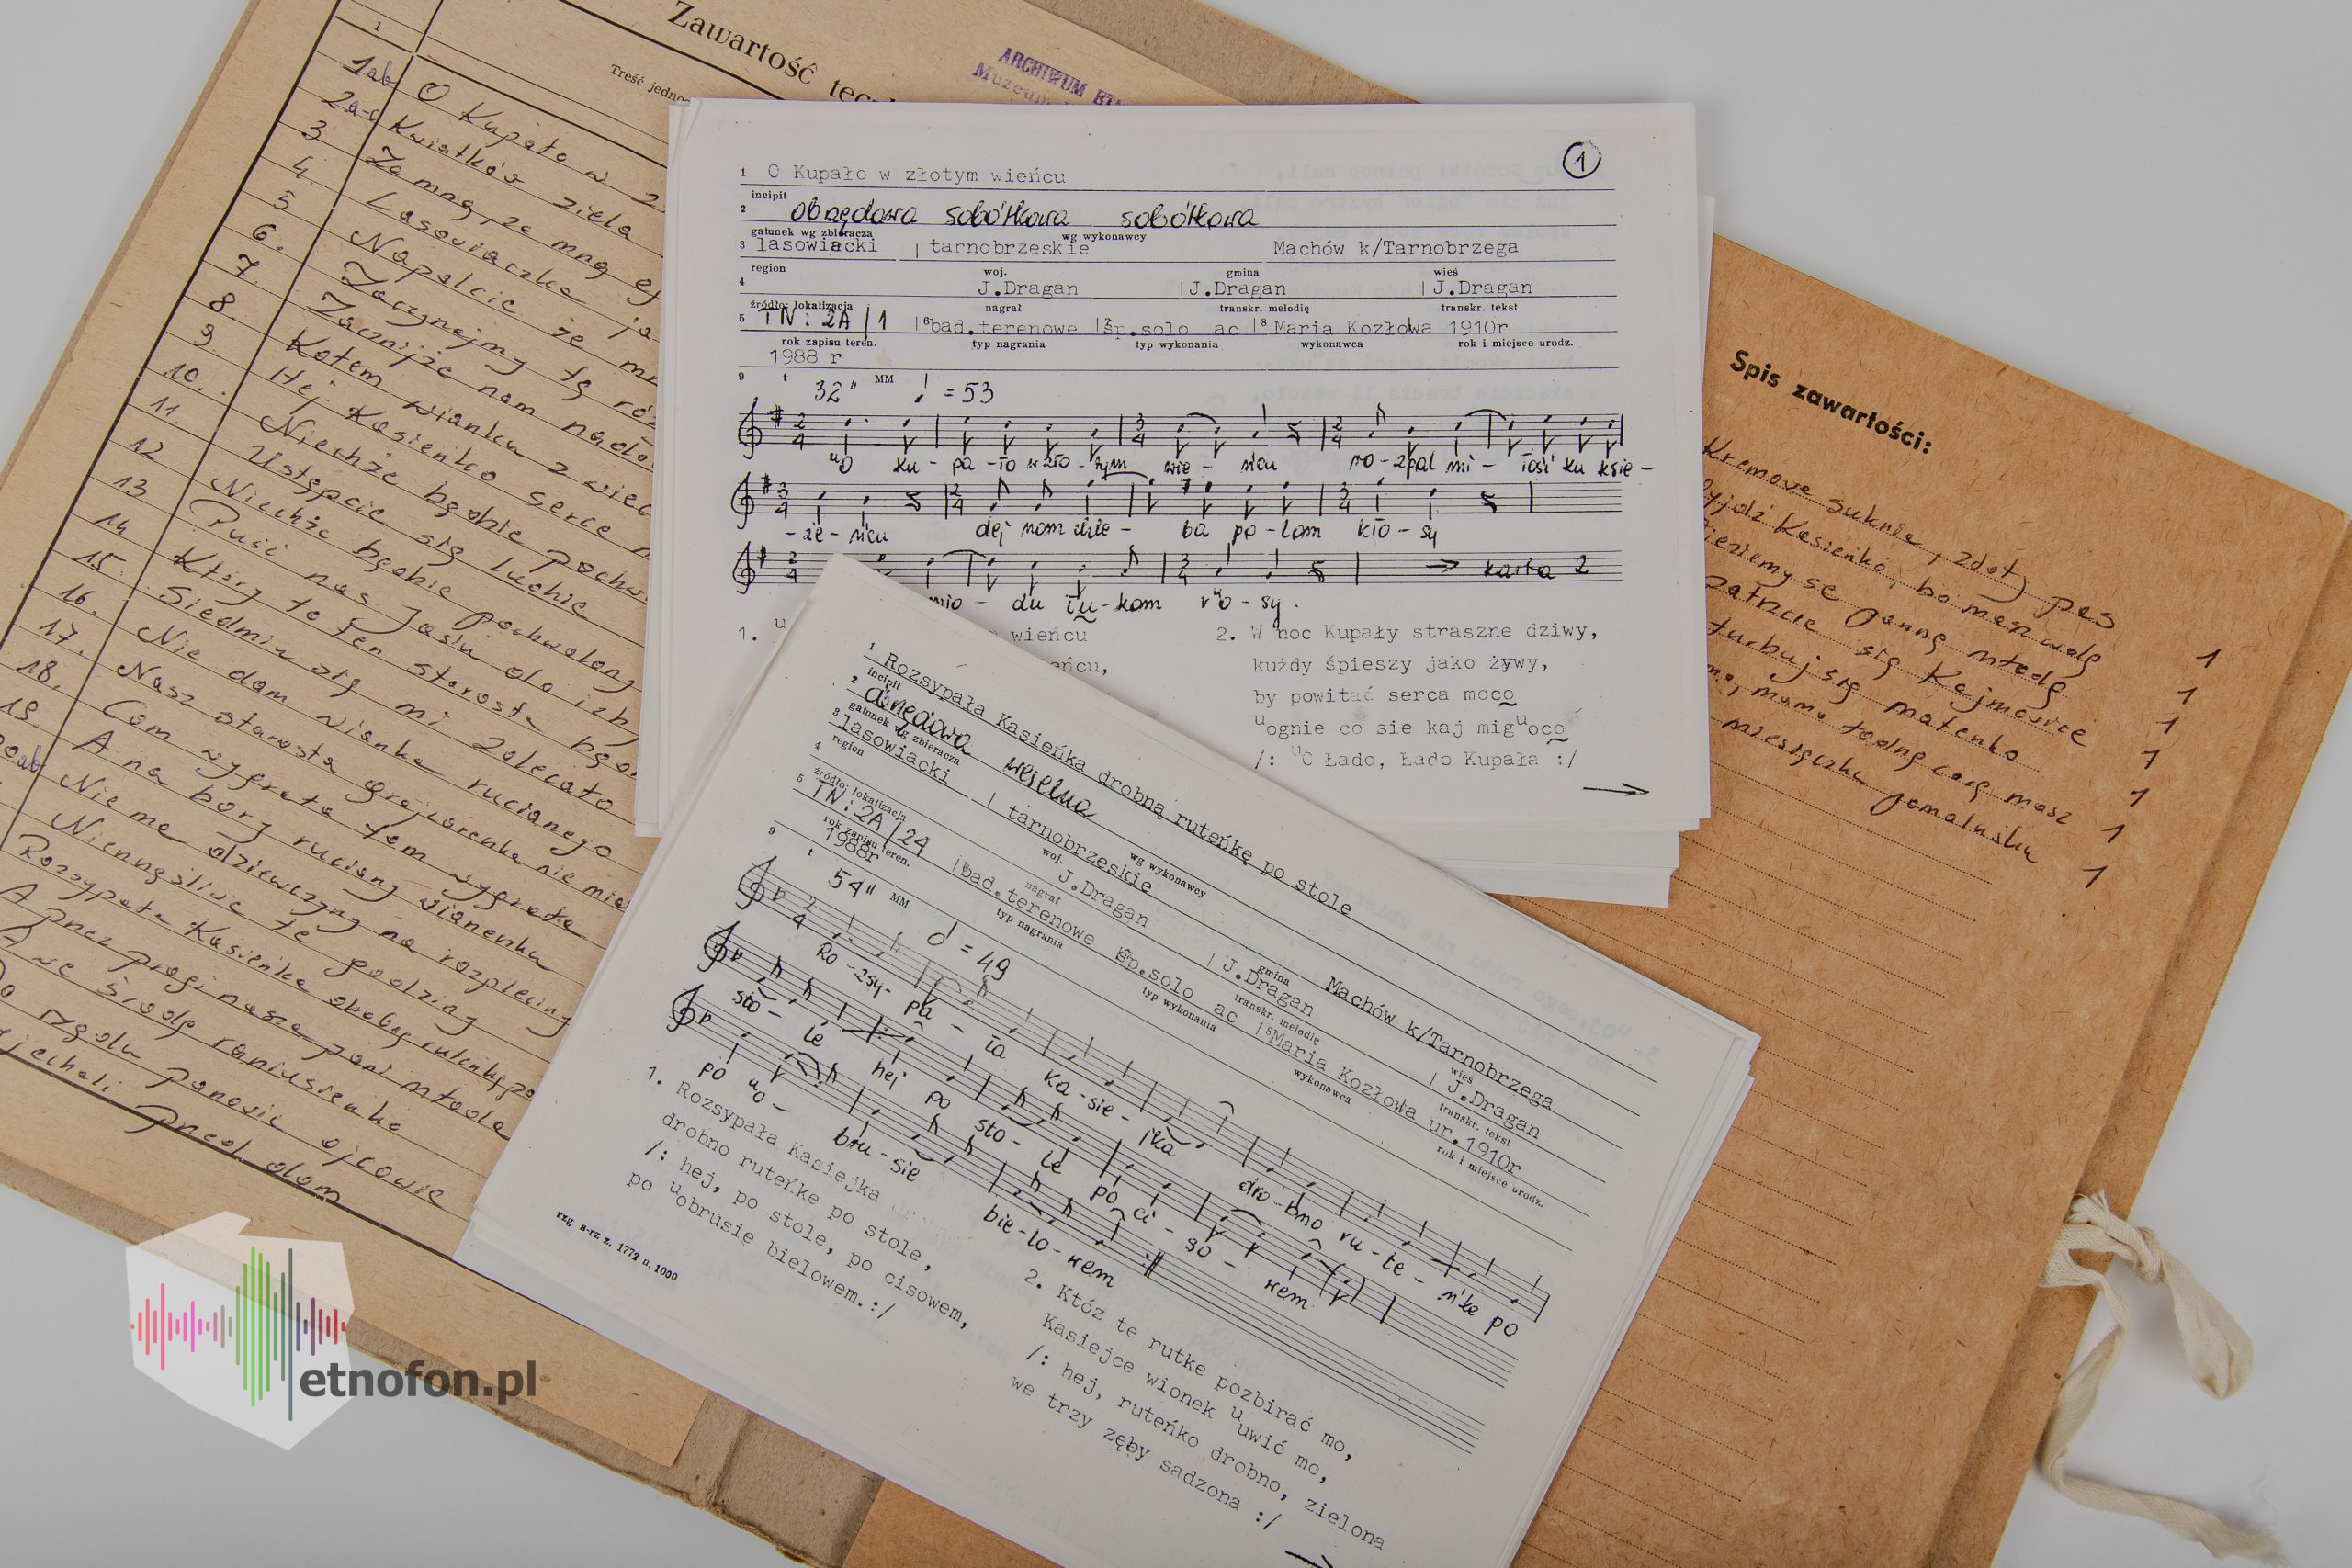 Zawartość
Treść jedno
ARCHIWUM
Muzeum
1
1ab O Kupało w
2a-c Kwiatków ziela
3 Ze mną, ze mną ej
4. Lasowiaczka ja
5 Napalcie że
6. Zacznijmy tę
7. Zacznijże nam
8. Kołem wianku z
9. Hej Kasieńko serce
10. Niechże będzie
11. Ustąpcie się ludzie
12 Niechże będzie pochwalony
13 Puść nas Jasiu do izby
14 Który to ten starosta
15. Siedmiu się mi zalecało
16. Nie dam wianka rucianego
17. Nasz starosta
18. Com wygrała tom wygrała
19. A na borz ruciany wianenku
20ab Nie ma dziewczyny na rozpleciny
Nienaęśliwe te godziny
Rozsypała Kasieńka drobną rutenkę po
A przez progi nasza pani młoda
A we środę raniusieńko
panowie ojcowie
przed dom
1
1 O Kupało w złotym wieńcu
incipit
2 obrzędowa sobótkowa sobótkowa
gatunek wg zbieracza wg wykonawcy
3 lasowiacki tarnobrzeskie Machów k/Tarnobrzega
region woj. gmina wieś
4 J.Dragan J.Dragan J.Dragan
źródło: lokalizacja nagrał transkr. melodię transkr. tekst
5 TN: 2A/1 6 bad.terenowe 7 śp.solo ac 8 Maria Kozłowa 1910r
rok zapisu teren. typ nagrania typ wykonania wykonawca rok i miejsce urodz.
1988 r
9 t 32" MM = 53
uO ku - pa - ło w zło - tym wie - ńcu ro - zpal mi - łość ku księ -
- że - ńcu dej nom chle - ba po - lom kło - sy
→ karta 2
mio - du łu - kom ruo - sy.
1. u wieńcu
eńcu,
2. W noc Kupały straszne dziwy,
kużdy śpieszy jako żywy,
by powitać serca moco
uognie co sie kaj miguoco
/: uO Łado, Łado Kupała :/
1 Rozsypała Kasieńka drobną ruteńkę po stole
incipit
2 obrzędowa weselna
gatunek wg zbieracza wg wykonawcy
3 lasowiacki tarnobrzeskie Machów k/Tarnobrzega
region woj. gmina wieś
4 J.Dragan J.Dragan J.Dragan
źródło: lokalizacja nagrał transkr. melodię transkr. tekst
5 TN: 2A/24 bad.terenowe śp.solo ac 8 Maria Kozłowa ur.1910r
rok zapisu teren. typ nagrania typ wykonania wykonawca rok i miejsce urodz.
1988r
9 t 54" MM = 49
Ro - zsy - pa - ła Ka - sie - jka dro - bno ru - te - ńke po
sto - le hej po sto - le po ci - so - wem
po uo - bru - sie bie - lo - wem
1. Rozsypała Kasiejka
drobno ruteńke po stole,
/: hej, po stole, po cisowem,
po uobrusie bielowem.:/
2. Któz te rutke pozbirać mo,
Kasiejce wionek uuwić mo,
/: hej, ruteńko drobno, zielona
we trzy zęby sadzona :/
rzg s-rz z. 1772 n. 1000
Spis zawartości:
Kremowe suknie, złoty pas 1
Wyjdź Kasieńko, bo masz wolę 1
wieziemy se pannę młodą 1
Patrzcie się Kajmowice 1
turbuj się matenko 1
mamo, mamo jedną córę masz 1
miesiączku pomaluśku 1
etnofon.pl